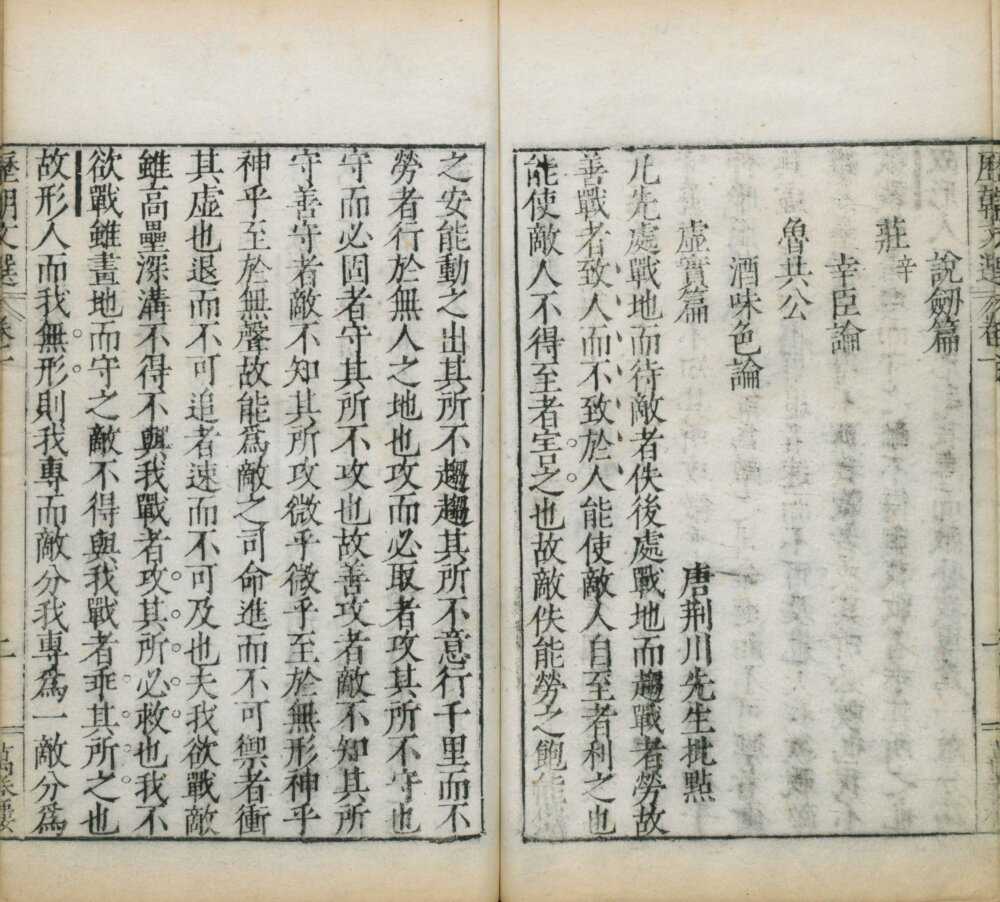 說劒篇
莊辛
幸臣論
魯共公
酒味色論
虛實篇
唐荆川先生批點
凡先處戰地而待敵者佚後處戰地而趨戰者勞故
善戰者致人而不致於人能使敵人自至者利之也
能使敵人不得至者害之也故敵佚能勞之飽能
之安能動之出其所不趨趨其所不意行千里而不
勞者行於無人之地也攻而必取者攻其所不守也
守而必固者守其所不攻也故善攻者敵不知其所
守善守者敵不知其所攻微乎微乎至於無形神乎
神乎至於無聲故能爲敵之司命進而不可禦者衝
其虛也退而不可追者速而不可及也夫我欲戰敵
雖高壘深溝不得不與我戰者攻其所必救也我不
欲戰雖畫地而守之敵不得與我戰者乖其所之也
故形人而我無形則我專而敵分我專爲一敵分爲
歷朝文選
卷十
二
萬卷樓